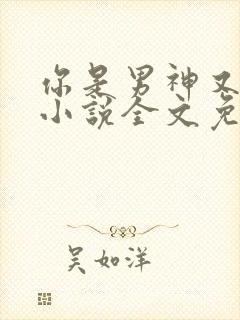 你是男神又
小说全文免
吴如洋